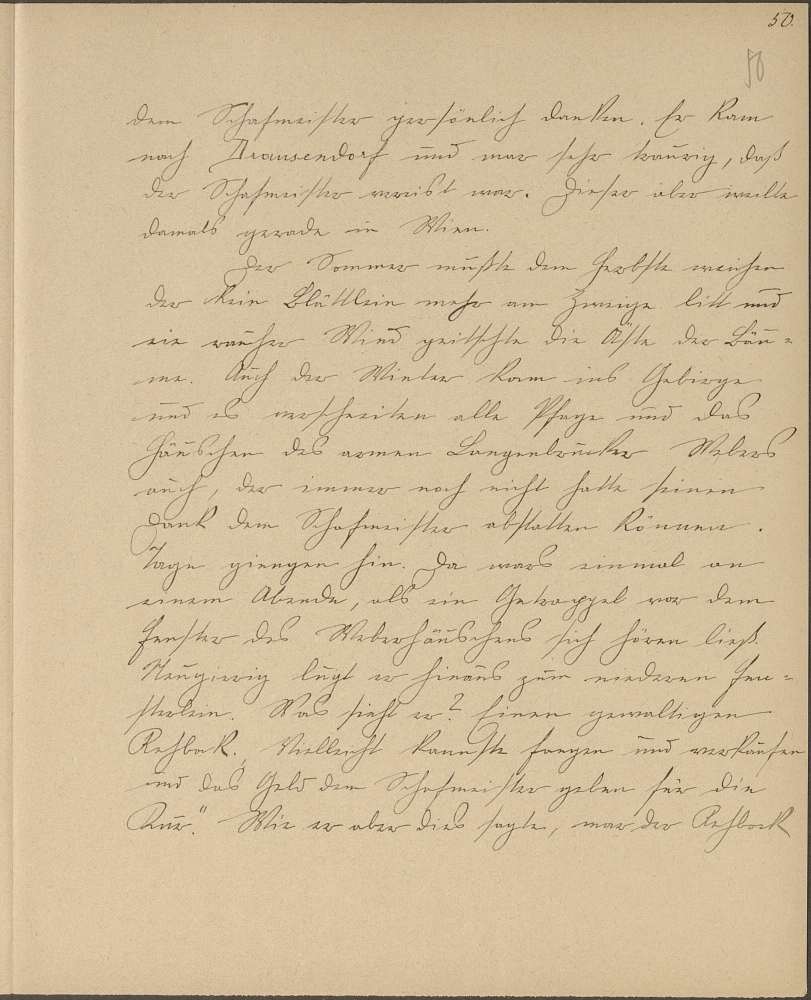 50.
50
dem Schafmeister persönlich danken. Er kam
nach Drausendorf und war sehr traurig, daß
der Schafmeister verreist war. Dieser aber weilte
damals gerade in Wien.
Der Sommer mußte dem Herbste weichen
der kein Blättlein mehr am Zweige litt und
ein rauher Wind peitschte die Äste der Bäu=
me. Auch der Winter kam ins Gebirge
und es verschneiten alle Pfade und das
Häuschen des armen Langenbrucker Webers
auch, der immer noch nicht hatte seinen
Dank dem Schafmeister abstatten können.
Tage giengen hin. Da wars einmal an
einem Abende, als ein Getrappel vor dem
Fenster des Weberhäuschens sich hören ließ.
Neugierig lugt er hinaus zum niederen Fen=
sterlein. Was sieht er? Einen gewaltigen
Rehbock. Vielleicht kannste fangen und verkaufen
und das Geld dem Schafmeister geben für die
Kur." Wie er aber dies sagte, war der Rehbock